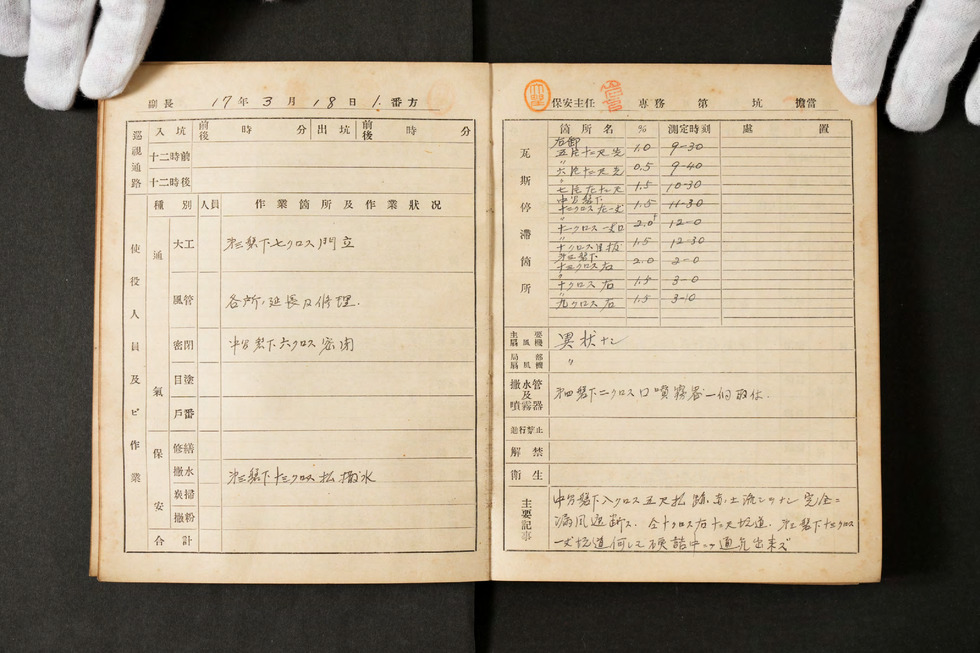 副長 17年3月18日 1.番方
巡視通路
入坑 前後 時 分 出坑 前後 時 分
十二時前
十二時後
使役人員及ビ作業
種別 人員 作業箇所及作業狀况
通氣
大工 㐧二盤下七クロス門立
風管 各所ノ延長及修理.
密閉 中分盤下六クロス密閉
目塗
戶番
保安
修繕
撒水 㐧二盤下十三クロス払撒水
炭掃
撒粉
合計
保安主任 専務 第 坑 擔當
瓦斯停滯箇所
箇所名 % 測定時刻 處置
右卸
五片十二尺 1.0 9-30
〃
六片十二尺 0.5 9-40
〃
七片左十二尺 1.5 10-30
中分盤下
十二クロス左一丈 1.5 11-30
〃
十一クロス一丈口 2.0 12-0
〃
十クロス目抜 1.5 12-30
十三クロス右 2.0 2-0
〃
十クロス右 1.5 3-0
〃
九クロス右 1.5 3-10
主要扇風機 異狀ナシ
局部扇風機 〃
撒水管及噴霧器 㐧四盤下二クロス口噴霧器一個取付.
進行禁止
解禁
衛生
主要記事
中分盤下八クロス五尺払跡 土流シ 完全ニ
漏風遮断ス. 仝十クロス右十二尺坑道. 㐧二盤下十二クロス
一丈坑道何レモ硬詰中 通气出来ズ